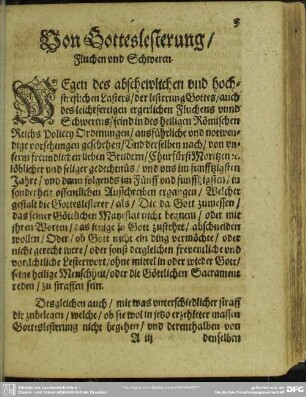 3
Von Gotteslesterung /
Fluchen vnd Schweren.
WEgen des abschewlichen vnd hoch-
streflichen Lasters / der lesterung Gottes / auch
des leichtfertigen ergerlichen Fluchens vnnd
Schwerens / seind in des heiligen Römischen
Reichs Policey Ordenungen / ausführliche vnd notwen-
dige vorsehungen geschehen / Vnd derselben nach / von vn-
serm freundlichen lieben Brudern / Churfürst Moritzen ꝛc.
löblicher vnd seliger gedechtnüs / vnd vns im funfftzigsten
Jahre / vnd dann folgends im Fünff vnd funfftzigsten / in
sonderheit öffentlichen Ausschreiben ergangen / Welcher
gestalt die Gotteslesterer / als / Die da Gott zumessen /
das seiner Göttlichen Mayestat nicht bequem / oder mit
jhren Worten / das jenige so Gott zustehet / abschneiden
wollen / Oder / ob Gott nicht ein ding vermöchte / oder
nicht gerecht were / oder sonst dergleichen freuentliche vnd
vorächtliche Lesterwort / ohne mittel in oder wieder Gott /
seine heilige Menschheit / oder die Göttlichen Sacrament
reden / zu straffen sein.
Desgleichen auch / mit was vnterschiedlicher straff
die zubelegen / welche / ob sie wol in jetzo erzehlter massen
Gotteslesterung nicht begehen / vnd derenthalben von
A iij
denselben